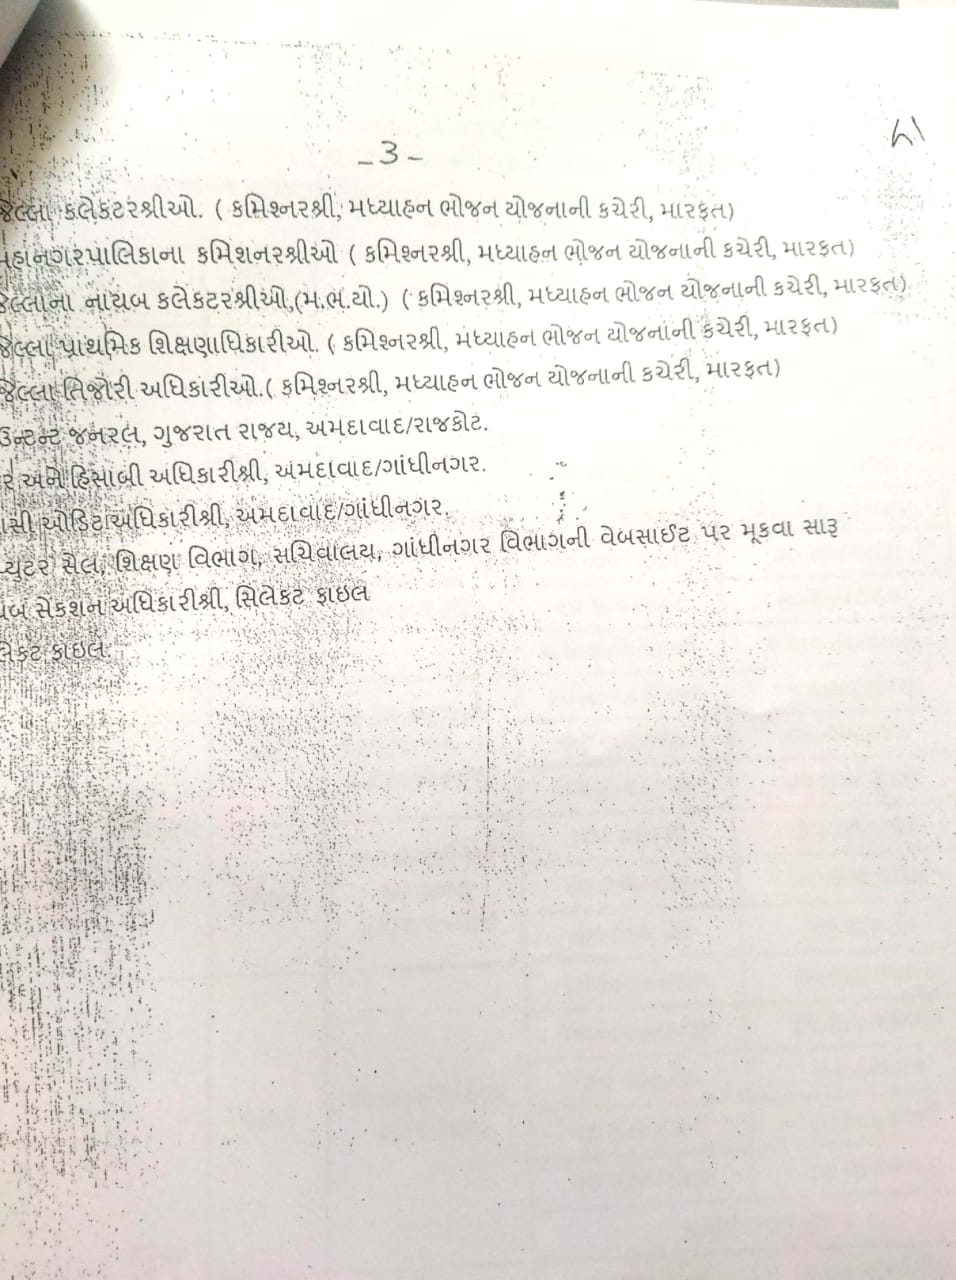 -3-
જિલ્લા કલેકટરશ્રીઓ. ( કમિશ્નરશ્રી, મધ્યાહન ભોજન યોજનાની કચેરી, મારફત)
મહાનગરપાલિકાના કમિશનરશ્રીઓ ( કમિશ્નરશ્રી, મધ્યાહન ભોજન યોજનાની કચેરી, મારફત)
જિલ્લાના નાયબ કલેકટરશ્રીઓ,(મ.ભ.યો.) ( કમિશ્નરશ્રી, મધ્યાહન ભોજન યોજનાની કચેરી, મારફત)
જિલ્લા પ્રાથમિક શિક્ષણાધિકારીઓ. ( કમિશ્નરશ્રી, મધ્યાહન ભોજન યોજનાની કચેરી, મારફત)
જિલ્લા તિજોરી અધિકારીઓ.( કમિશ્નરશ્રી, મધ્યાહન ભોજન યોજનાની કચેરી, મારફત)
ઉન્ટન્ટ જનરલ, ગુજરાત રાજય, અમદાવાદ/રાજકોટ.
અને હિસાબી અધિકારીશ્રી, અમદાવાદ/ગાંધીનગર.
ઓડિટ અધિકારીશ્રી, અમદાવાદ/ગાંધીનગર.
પ્યુટર સેલ, શિક્ષણ વિભાગ, સચિવાલય, ગાંધીનગર વિભાગની વેબસાઈટ પર મૂકવા સારૂ
યબ સેકશન અધિકારીશ્રી, સિલેકટ ફાઇલ
લેકટ ફાઇલ.